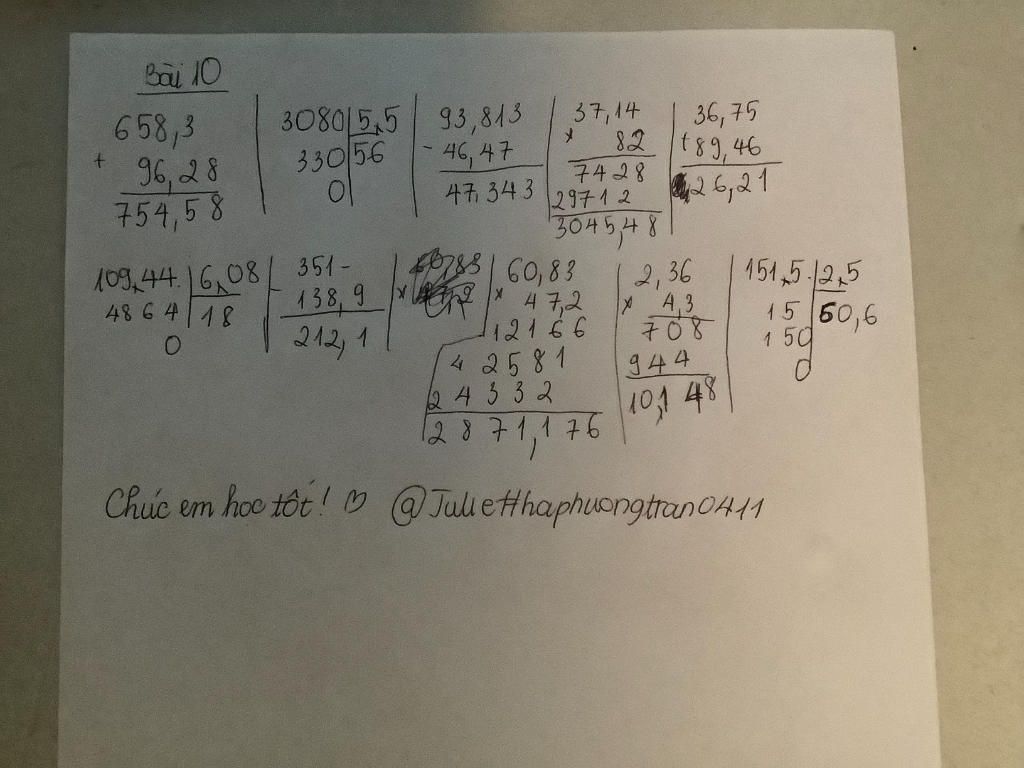 Bài 10
658,3 | 3080 | 5,5 | 93,813 | 37,14 | 36,75
+ 96,28 | 330 | 56 | - 46,47 | × 82 | + 89,46
754,58 | 0 | 47,343 | 7428 | 26,21
29712
3045,48
109,44 | 6,08 | 351 - | 60,83 | 2,36 | 151,5 | 2,5
4864 | 18 | - 138,9 | × 47,2 | × 4,3 | 15 | 60,6
0 | 212,1 | 12166 | 708 | 150
42581 | 944 | 0
24332 | 10,148
2871,176
Chúc em học tốt! ♡ @Julietthaphuongtran0411